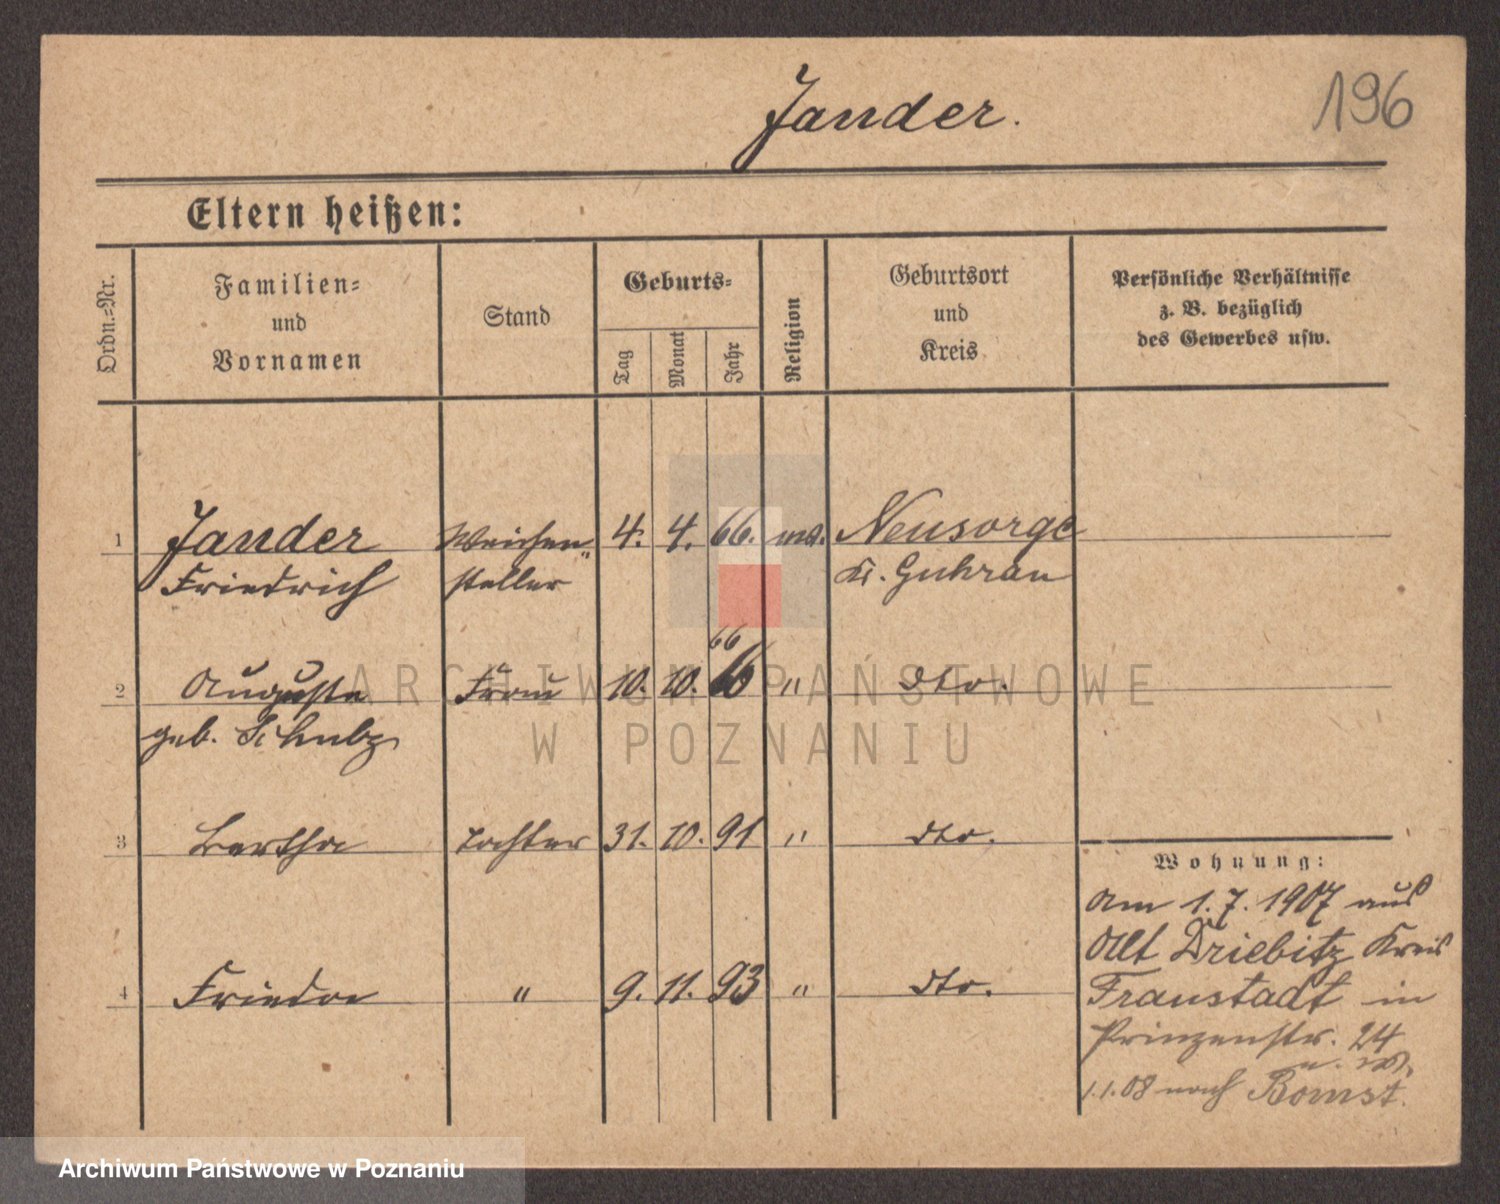 Jander.
196
Eltern heißen:
Ordn.=Nr.
Familien=
und
Vornamen
Stand
Geburts=
Tag
Monat
Jahr
Religion
Geburtsort
und
Kreis
Persönliche Verhältnisse
z. B. bezüglich
des Gewerbes usw.
1 Jander Weichen„ 4. 4. 66. Neusorge
Friedrich steller Kr. Guhrau
66
2 Auguste Frau 10. 10. " dto.
geb. Schulz
3 Bertha Tochter 31. 10. 91 " dto.
4 Frieda " 9. 11. 93 " dto.
Wohnung:
Am 1.7.1907 aus
Alt Driebitz Kreis
Fraustadt in
Prinzenstr. 24
1.1.08 nach Bomst.
ARCHIWUM PAŃSTWOWE
W POZNANIU
Archiwum Państwowe w Poznaniu